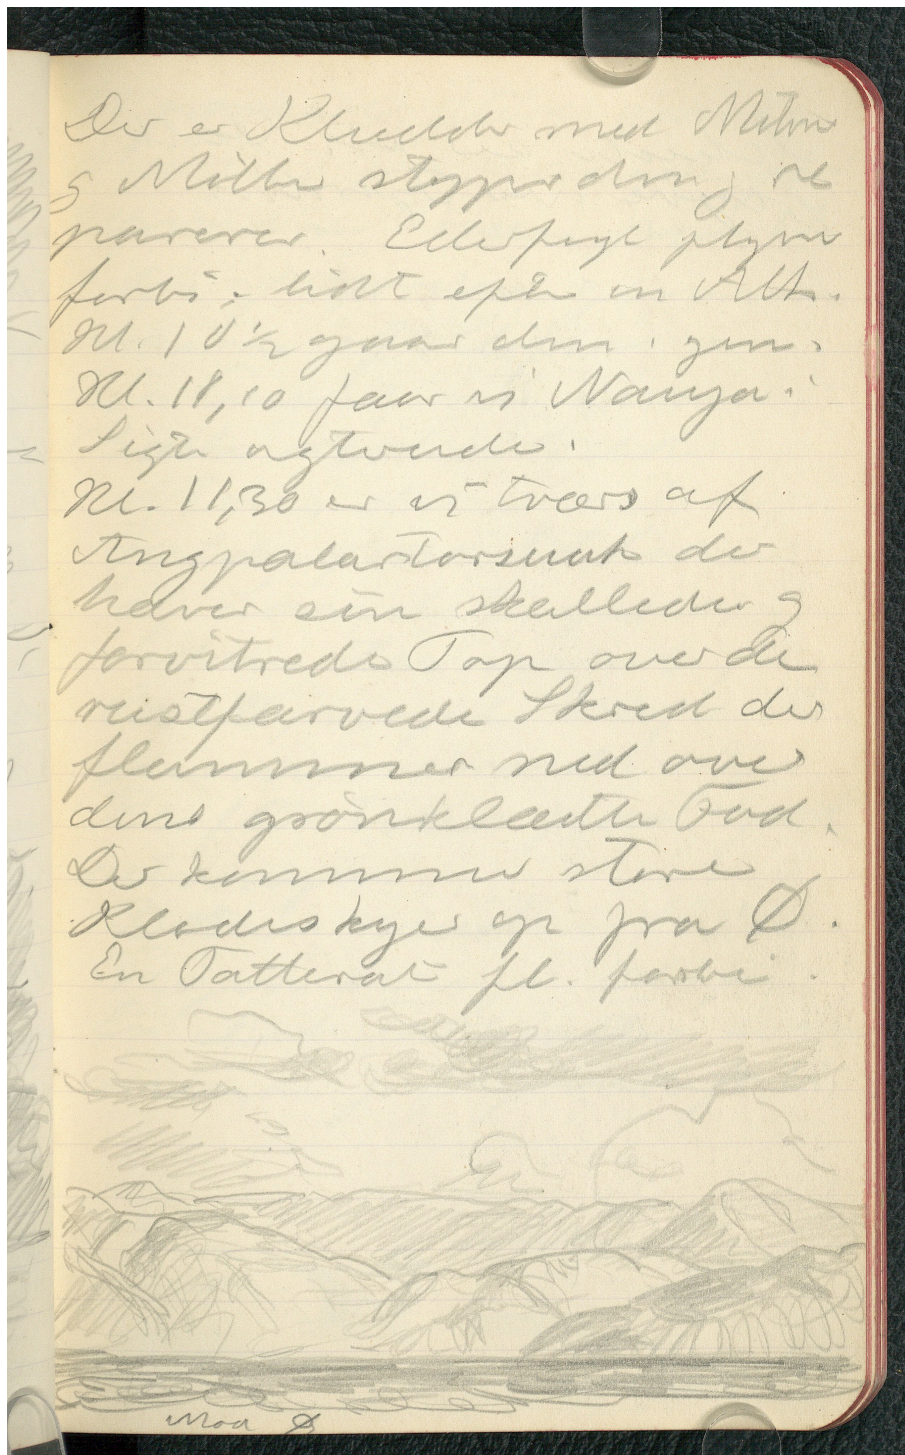 Der er Kludder med Motoren
og Møller stopper den og re
parerer. Ederfugl flyver
forbi, lidt efter en Alk.
Kl. 10½ gaar den igen.
Kl. 18,10 faar vi Nanya i
Sigte agtende.
Kl. 11,30 er vi tværs af
Angpalartorsuak der
hæver sin skallede og
forvitrede Top over de
rustfarvede Skred der
flammer ned over
dens grönklædte Fod.
Der kommer store
Klodeskyer op fra Ø.
En Tatterat fl. forbi.
Mod Ø